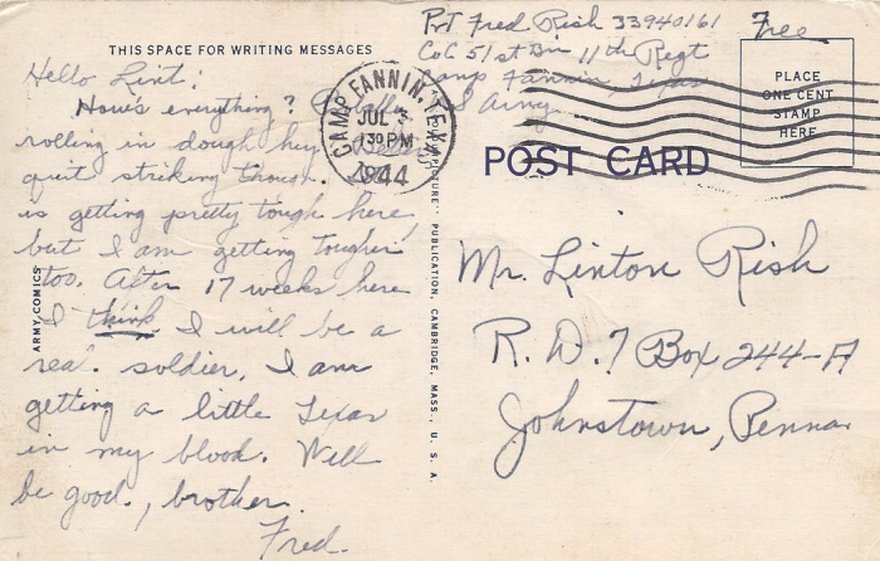 Pvt Fred Rish 33940161
Co C 51st Bn 11th Regt
Camp Fannin, Texas
U S Army
Free
THIS SPACE FOR WRITING MESSAGES
PLACE
ONE CENT
STAMP
HERE
CAMP FANNIN, TEXAS
JUL 3
130 PM
1944
POST CARD
Hello Lint:
How's everything? Probably
rolling in dough hey. Better
quit striking though.
is getting pretty tough here
but I am getting tougher
too. After 17 weeks here
I think I will be a
real. soldier, I am
getting a little Texas
in my blood. Well
be good., brother.
Fred.
ARMY COMICS
PICTURE" PUBLICATION, CAMBRIDGE, MASS., U. S. A.
Mr. Linton Rish
R. D. 7 Box 244-A
Johnstown, Penna.